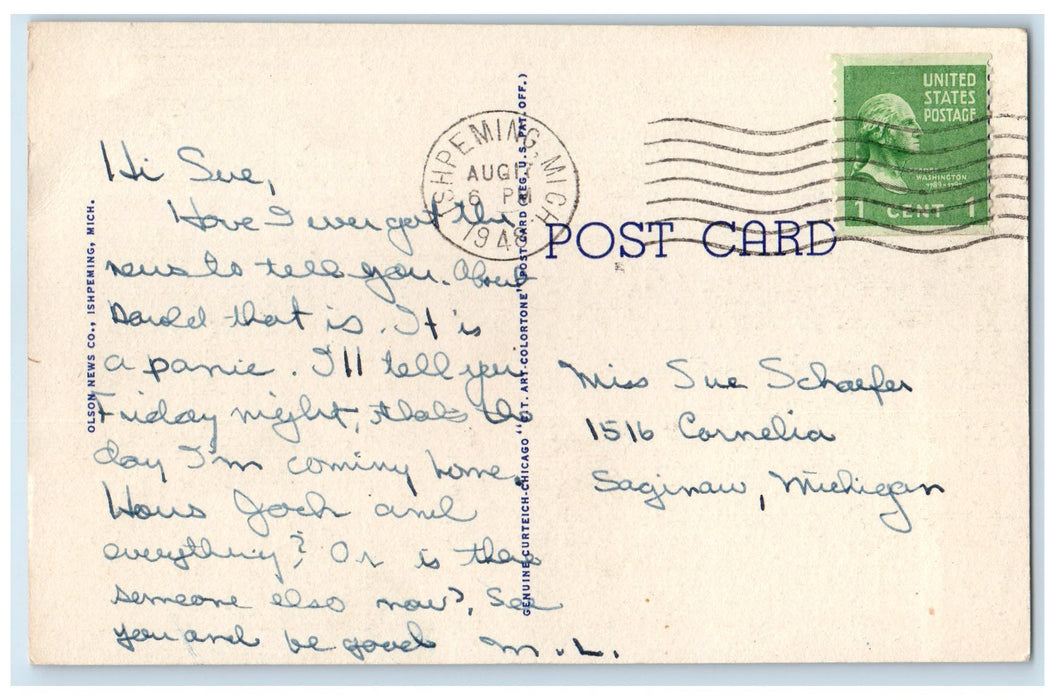 Hi Sue,
Have I ever got the
news to tell you. About
Darold that is. It is
a panic. I'll tell you
Friday night, thats the
day I'm coming home.
Hows Jack and
everything? Or is there
someone else now?, See
you and be good
M.L.
OLSON NEWS CO., ISHPEMING, MICH.
GENUINE CURTEICH-CHICAGO "C.T. ART-COLORTONE" POST CARD (REG. U.S. PAT. OFF.)
ISHPEMING, MICH.
AUG
6 PM
1948
POST CARD
UNITED
STATES
POSTAGE
WASHINGTON
1789-1797
1 CENT 1
Miss Sue Schaefer
1516 Cornelia
Saginaw, Michigan